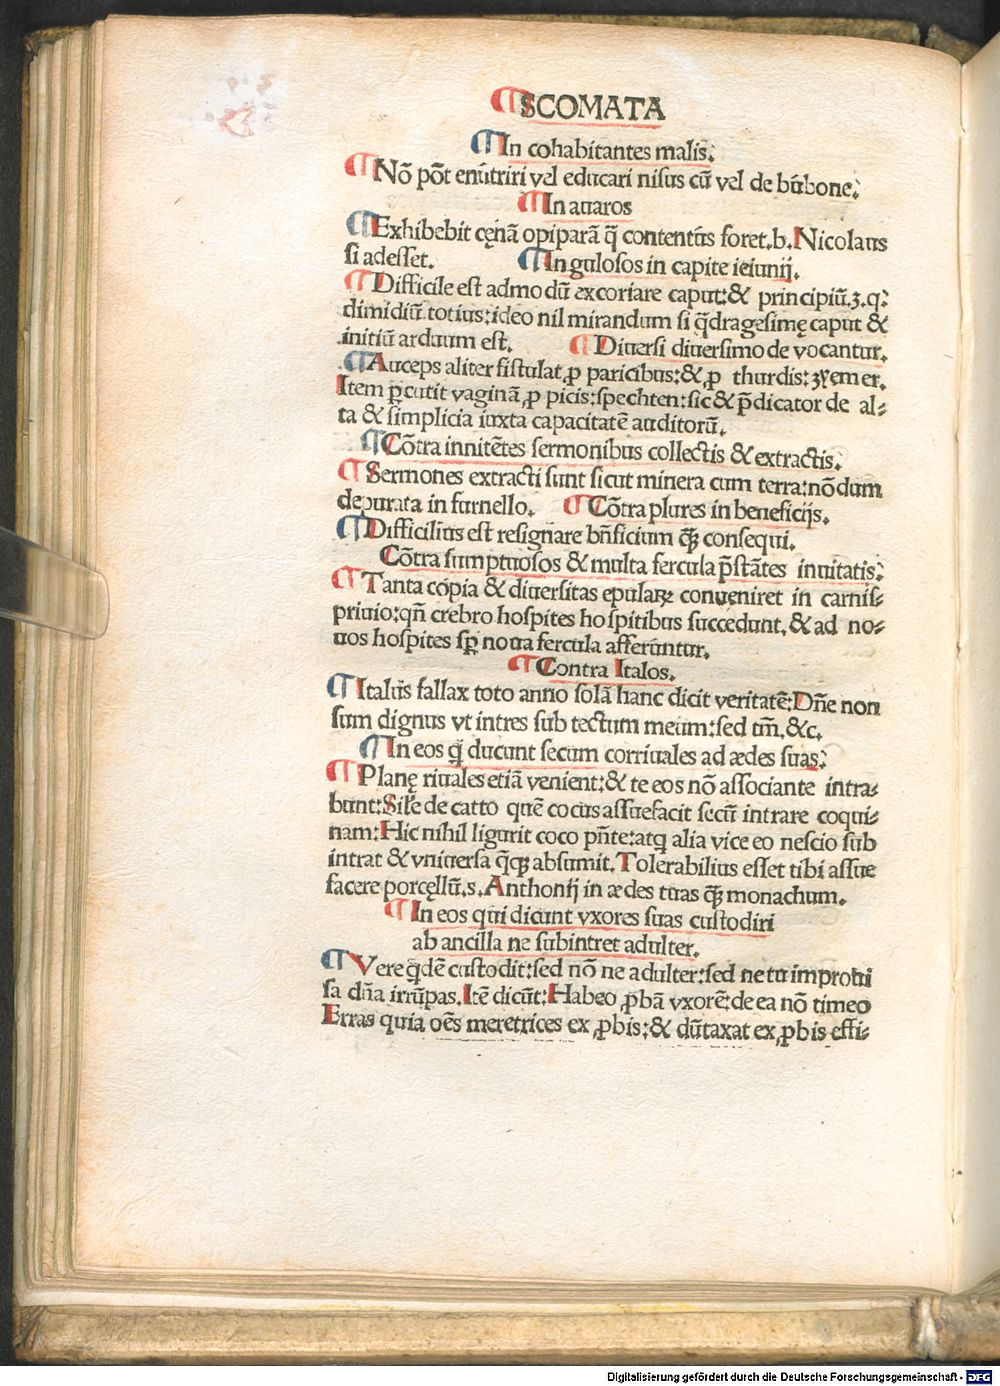 SCOMATA
In cohabitantes malis:
Nō pōt enūtriri vel educari nisus cū vel de būbone:
In auaros
Exhibebit cęnā opiparā q̄ contentus foret.b.Nicolaus
si adesset. In gulosos in capite ieiunij.
Difficile est admodū excoriare caput:& principiū.ʒ.q:
dimidiū totius:ideo nil mirandum si q̄dragesimę caput &
initiū arduum est. Diuersi diuersimode vocantur.
Auceps aliter fistulat ꝓ paricibus:& ꝓ thurdis: ʒyemer.
Item ꝑcutit vaginā ꝓ picis:spechten:sic & p̄dicator de al⸗
ta & simplicia iuxta capacitatē auditorū.
Cōtra innitētes sermonibus collectis & extractis.
Sermones extracti sunt sicut minera cum terra:nōdum
depurata in furnello. Cōtra plures in beneficijs.
Difficilius est resignare bn̄ficium q̄ꝫ consequi.
Cōtra sumptuosos & multa fercula p̄stātes inuitatis:
Tanta copia & diuersitas epularꝝ conueniret in carnis⸗
priuio:qn̄ crebro hospites hospitibus succedunt.& ad no⸗
uos hospites sꝑ noua fercula afferuntur.
Contra Italos.
Italus fallax toto anno solā hanc dicit veritatē:Dn̄e non
sum dignus vt intres sub tectum meum:sed tm̄.&c.
In eos q̄ ducunt secum corriuales ad ædes suas:
Planę riuales etiā venient:& te eos nō associante intra⸗
bunt:Sil'e de catto quē cocus assuefacit secū intrare coqui⸗
nam:Hic nihil ligurit coco pn̄te:atqꝫ alia vice eo nescio sub
intrat & vniuersa q̄qꝫ absumit.Tolerabilius esset tibi assue
facere porcęllū.s.Anthonij in ædes tuas q̄ꝫ monachum.
In eos qui dicunt vxores suas custodiri
ab ancilla ne subintret adulter.
Vere q̄dē custodit:sed nō ne adulter:sed ne tu improui
sa dn̄a irrūpas.Itē dicūt:Habeo ꝓbā vxorē:de ea nō timeo
Erras quia oēs meretrices ex ꝓbis:& dūtaxat ex ꝓbis effi⸗
Digitalisierung gefördert durch die Deutsche Forschungsgemeinschaft - DFG